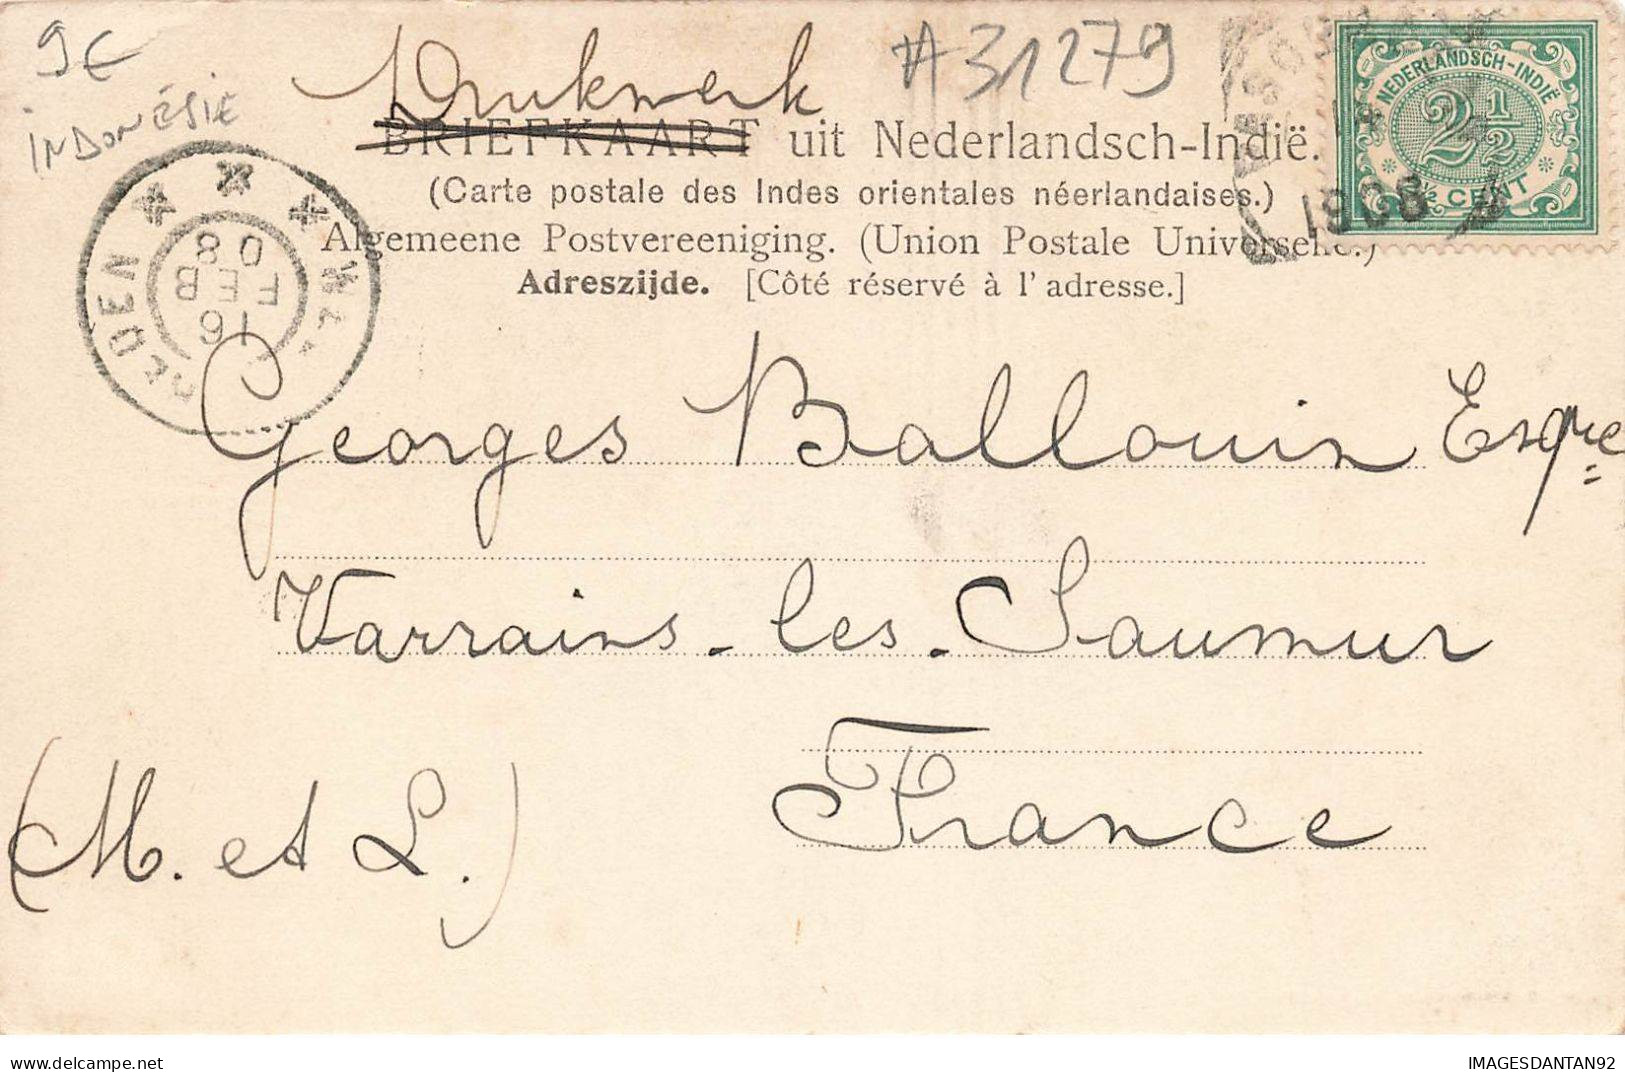 9€
INDONÉSIE
Drukwerk
#31279
BRIEFKAART uit Nederlandsch-Indië.
(Carte postale des Indes orientales néerlandaises.)
Algemeene Postvereeniging. (Union Postale Universelle.)
Adreszijde. [Côté réservé à l'adresse.]
NEDERLANDSCH-INDIË
2 1/2
CENT
1908
16
FEB
08
Georges Ballouin Esqre
Varrains-les-Saumur
France
(M. et L.)
Delcampe.net
IMAGESDANTAN92